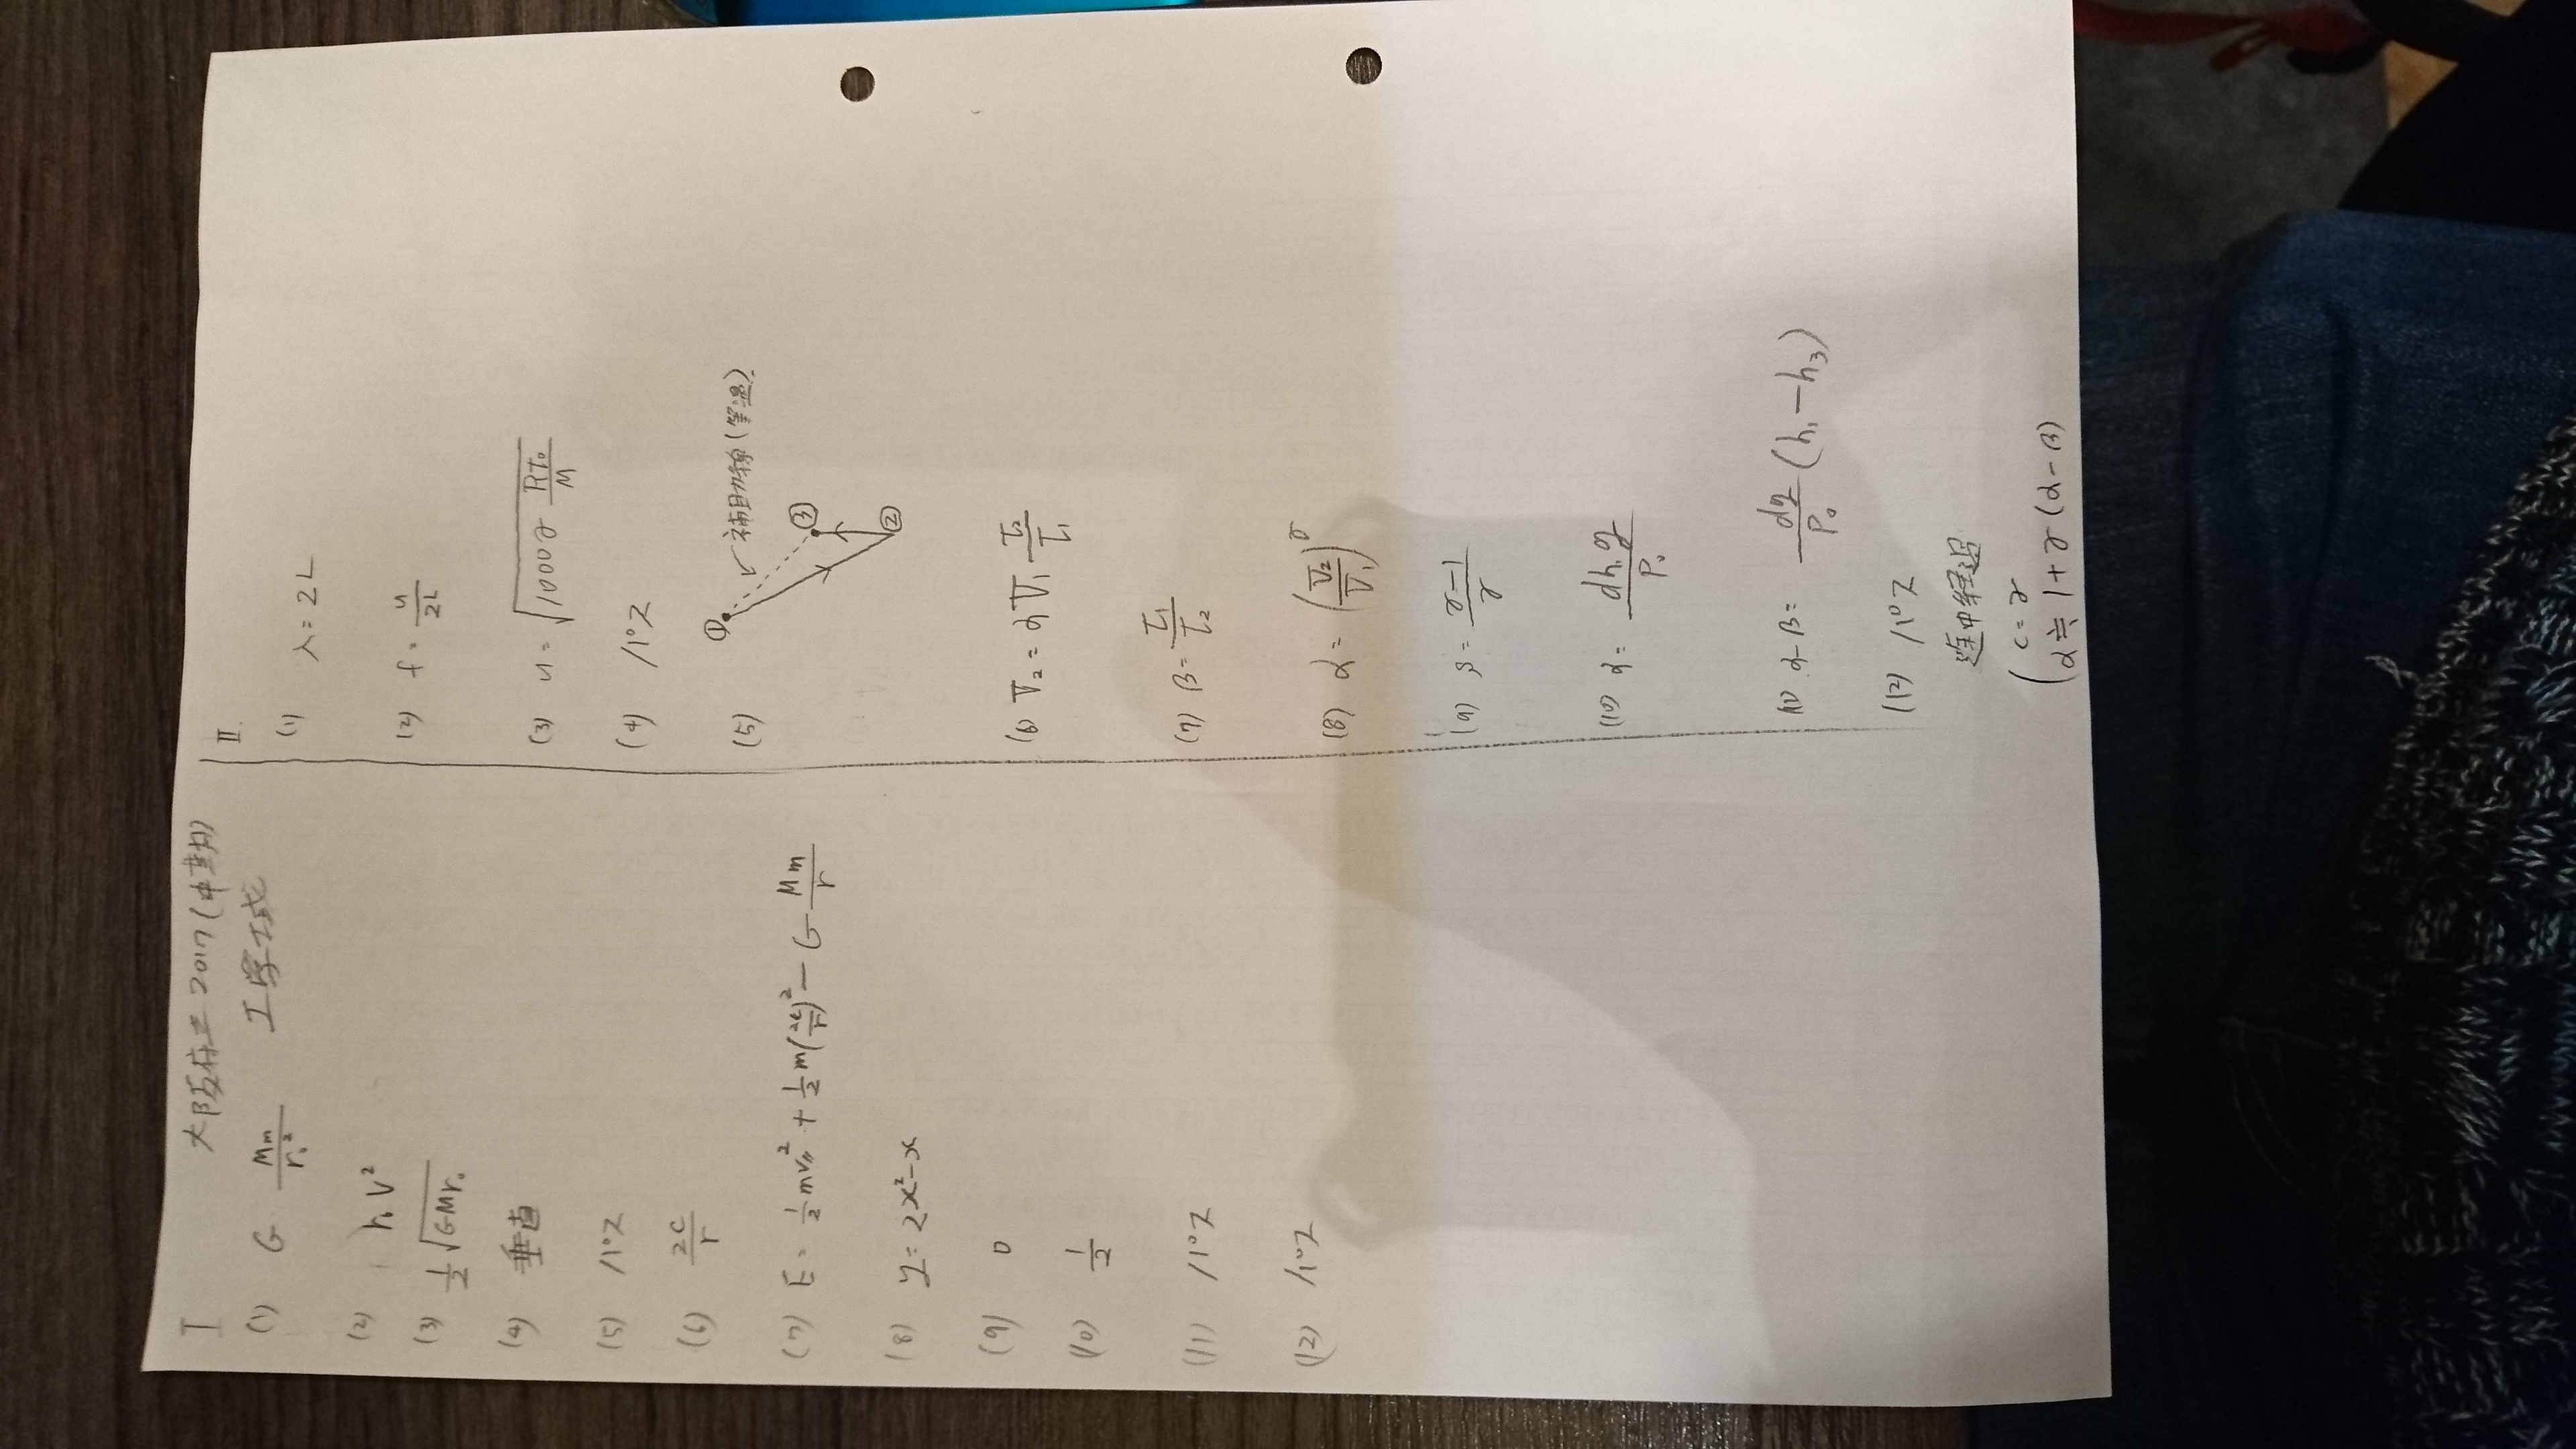 I 大阪府立2017(中期)
工学域
(1) G Mm/r₀²
(2) r₀V²
(3) 1/2 √GMr₀
(4) 垂直
(5) パス
(6) 2c/r
(7) E = 1/2 mv∥² + 1/2 m(2c/r)² - G Mm/r
(8) y = 2x² - x
(9) 0
(10) 1/2
(11) パス
(12) パス
II
(1) λ = 2L
(2) f = u/2L
(3) u = √1000γ RT₀/M
(4) パス
(5) ① ② ③ 補助線(等温).
(6) V₂ = αV₁ T₂/T₁
(7) β = T₁/T₂
(8) α = (V₂/V₁)^γ
(9) β = γ-1/γ
(10) α = dh₁g/P₀
(11) α-β = dg/P₀ (h₁-h₃)
(12) パス
途中経過
(c = γ
α≒1+γ(α-β)